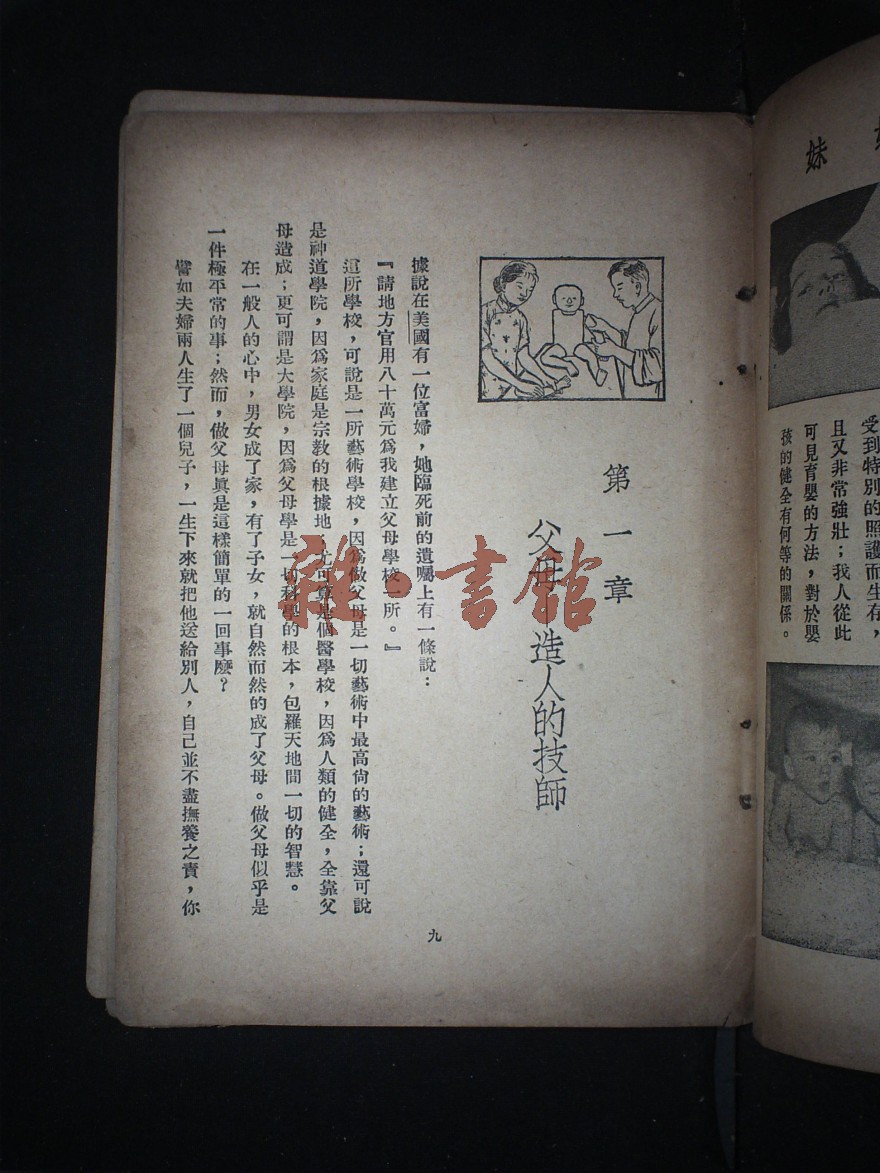 妹
受到特別的照護而生存，
且又非常強壯；我人從此
可見育嬰的方法，對於嬰
孩的健全有何等的關係。
第一章
父母 造人的技師
據說在美國有一位富婦，她臨死前的遺囑上有一條說：
『請地方官用八十萬元爲我建立父母學校一所。』
這所學校，可說是一所藝術學校，因爲做父母是一切藝術中最高尙的藝術；還可說
是神道學院，因爲家庭是宗教的根據地；尤可算是個醫學校，因爲人類的健全，全靠父
母造成；更可謂是大學院，因爲父母學是一切科學的根本，包羅天地間一切的智慧。
在一般人的心中，男女成了家，有了子女，就自然而然的成了父母。做父母似乎是
一件極平常的事；然而，做父母眞是這樣簡單的一回事麼？
譬如夫婦兩人生了一個兒子，一生下來就把他送給別人，自己並不盡撫養之責，你
九
雜·書館